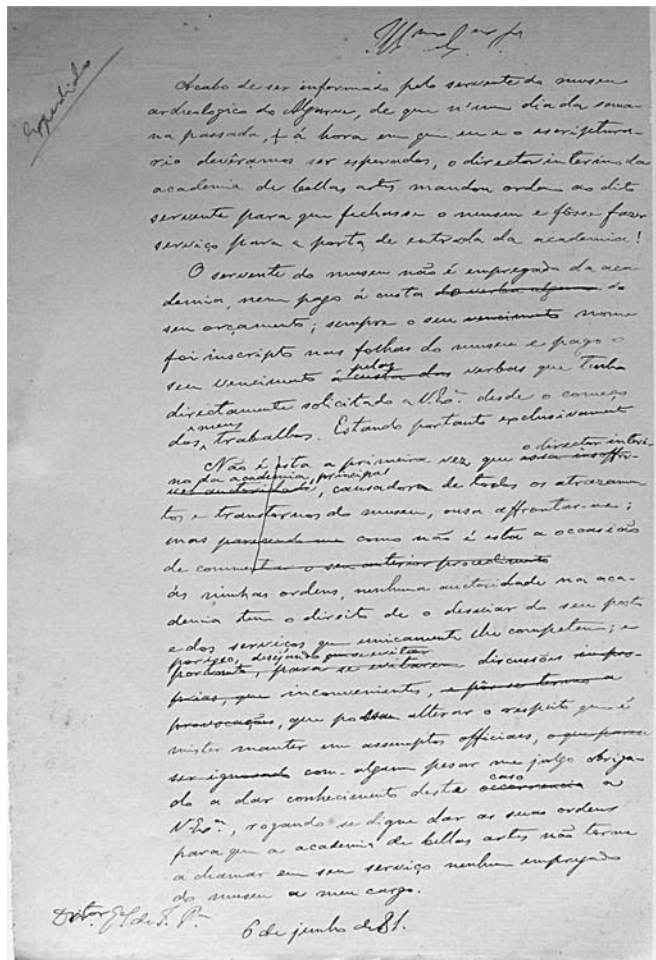 Expedido
Illmo Exmo Sr
Acabo de ser informado pelo servente do museu
archeologico do Algarve, de que n'um dia da sema-
na passada, e á hora em que eu e o escriptura-
rio deviâmos ser esperados, o director interino da
academia de bellas artes mandou ordem ao dito
servente para que fechasse o museu e fôsse fazer
serviço para a porta de entrada da academia!
O servente do museu não é empregado da aca-
demia, nem pago á custa do verba alguma do
seu orçamento; sempre o seu vencimento nome
foi inscripto nas folhas do museu e pago o
seu vencimento á custa das pelas verbas que tenho
directamente solicitado a V. Exª. desde o começo
dos meus trabalhos. Estando portanto exclusivamente
Não é esta a primeira vez que essa insoffri-
o director interi-
no da academia, principal
vel auctoridade, causadora de todos os atrazamen-
tos e transtornos do museu, ousa affrontar-me;
mas parecendo-me como não é esta a occasião
de commentar o seu anterior procedimento
ás minhas ordens, nenhuma auctoridade na aca-
demia tem o direito de o desviar do seu posto
e dos serviços que unicamente lhe competem; e
por isso, desejando que se evitar
portanto, para se evitarem discussões impro-
prias, que inconvenientes, e pôr-se termo a
provocações, que possam alterar o respeito que é
mister manter em assumptos officiaes,
ser ignorado com algum pesar me julgo obriga-
do a dar conhecimento deste occorrencia caso a
V. Exª., rogando se digne dar as suas ordens
para que a academia de bellas artes não torne
a chamar em seu serviço nenhum empregado
do museu a meu cargo.
6 de junho de 81.